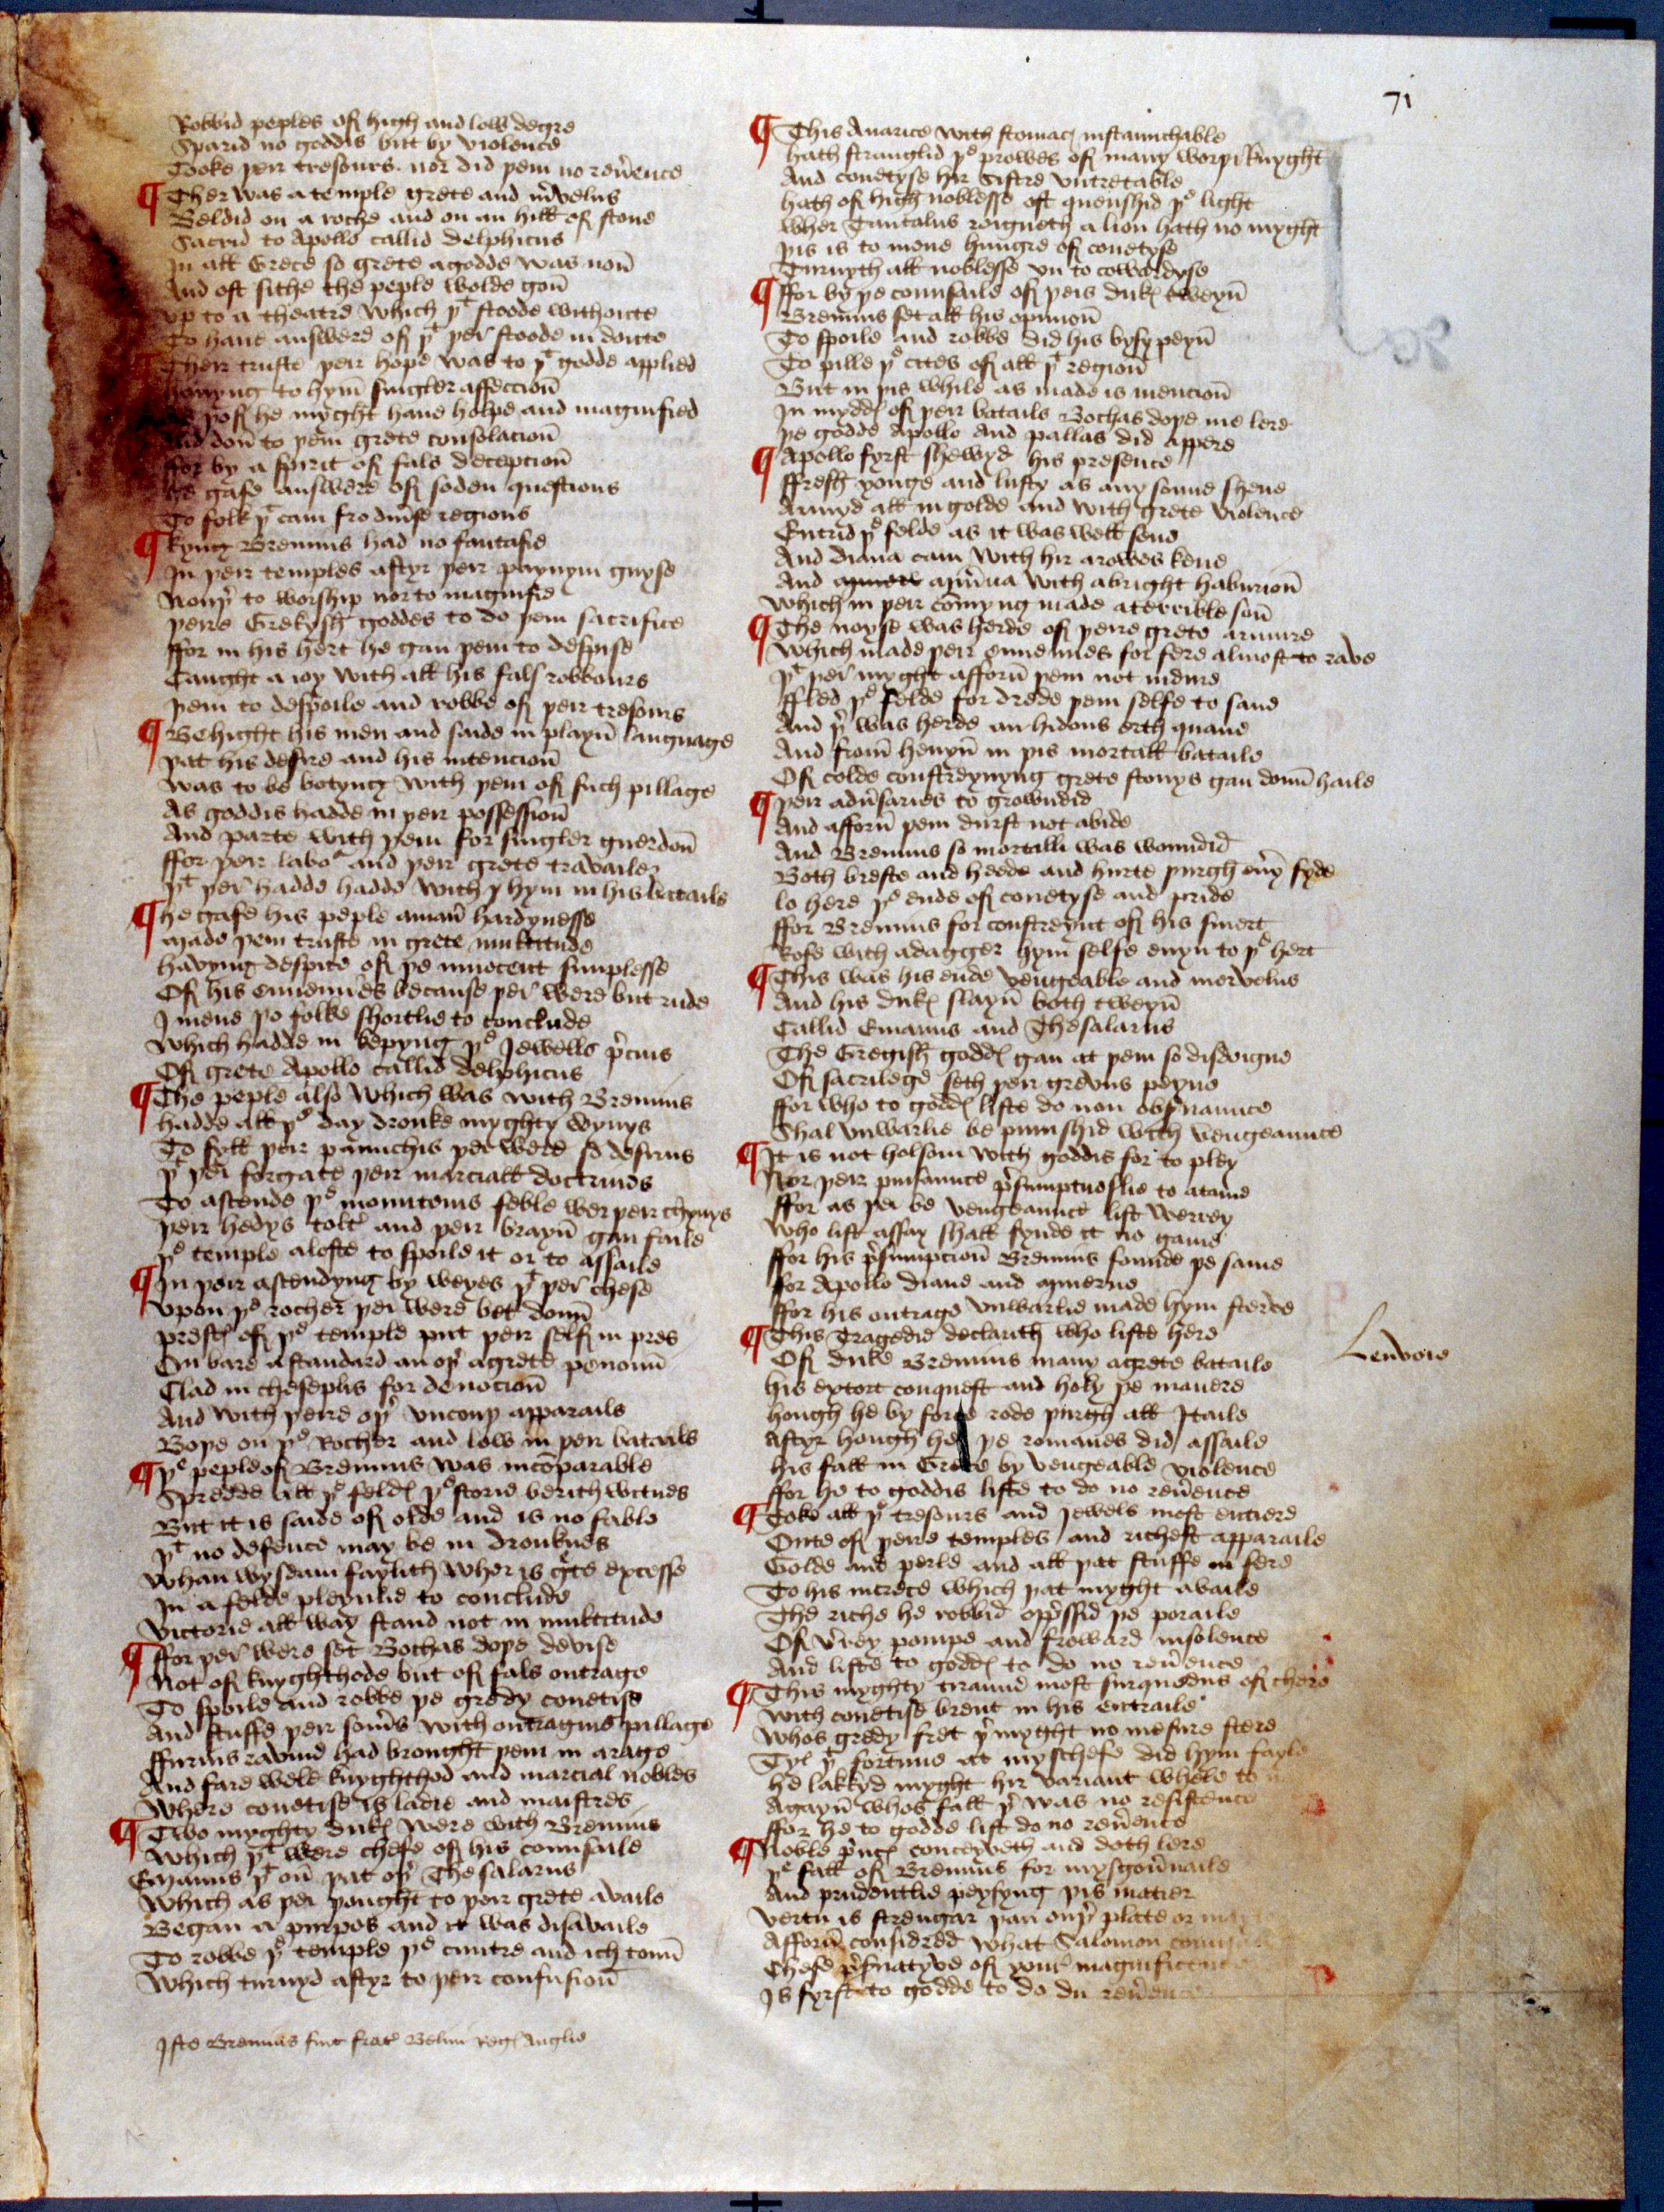 71
Robbid peples of high and low degre
Sparid no goddis but by violence
Tooke þeir tresours nor did þem no reu̅ence
¶ Ther was a temple grete and m̅velus
Beldid on a roche and on an hill of stone
Sacrid to Apollo callid delphicus
In all Grece so grete a godde was non̅
And oft sithe the peple wolde gon̅
vp to a theatre which þᵗ stoode withoute
To haue answere of þᵗ þei stoode in doute
Their truste þeir hope was to þᵗ godde applied
hauyng to hym̅ singler affeccion̅
þof he myght haue holpe and magnified
don̅ to þem grete consolacion̅
ffor by a spirit of fals decepcion̅
he gafe answere of soden questions
To folk þᵗ cam fro diu̅se regions
¶ kyng Brennus had no fantasie
In þeir temples aftyr þeir paynym guyse
Nouþ̅ to worship nor to magnifie
þeire Grekysh goddes to do þem sacrifice
ffor in his hert he gan þem to despise
Caught a ioy with all his fals robbours
þem to despoile and robbe of þeir tresours
¶ Behight his men and saide in playn̅ language
þat his desire and his intencion̅
was to be botyng with þem of such pillage
As goddis hadde in þeir possession̅
And parte with þem for singler guerdon̅
ffor þeir labor and þeir grete travailes
þᵗ þei hadde hadde with hym in his batails
¶ he gafe his peple aman̅ hardynesse
made þem truste in grete multitude
havyng despite of þe innocent simplesse
Of his ennemies because þei were but rude
I mene þo folke shortlie to conclude
which hadde in kepyng þᵉ Jewells p̅cius
Of grete Apollo callid delphicus
¶ The peple also which was with Brennus
hadde all þᵉ day dronke myghty wynys
To fyll þeir paunchis þei were so desirus
þᵗ þei forgate þeir marciall doctrines
To ascende þᵉ mountains feble wer þeir chynys
þeir hedys tolt and þeir brayn̅ gan faile
þᵉ temple alofte to spoile it or to assaile
¶ In þeir ascendyng by weyes þᵗ þei chese
vpon þᵉ rocher þei were bet doun̅
prestes of þᵉ temple put þeir self in pres
On bare a standard an oþ̅ a grete penoun̅
Clad in cheseplis for deuocion̅
And with þeire oþ̅ vncouþ apparails
Boþe on þᵉ Rocher and low in þeir batails
¶ þᵉ peple of Brennus was inco̅parable
Spredde all þᵉ feldes þᵉ storie berith witnes
But it is saide of olde and is no fable
þᵗ no defence may be in dronknes
whan wysdam faylith wher is grete excesse
In a felde pleynlie to conclude
victorie all way stand not in multitude
¶ ffor þei were set Bochas doþe devise
Not of knyghthode but of fals outrage
To spoile and robbe þe gredy couetise
And stuffe þeir som̅s with outragius pillage
ffurius ravine had brought þem in arage
And fare wele knyghthod and marcial nobles
where couetise is ladie and maistres
¶ Two myghty dukes were with Brennus
which þᵗ were chefe of his counsaile
Emanus þᵗ on̅ þat oþ̅ Thesalarus
which as þei þought to þeir grete availe
Began a purpos and it was disavaile
To robbe þᵉ temple þᵉ cuntre and ich toun̅
which turnyd aftyr to þeir confusion̅
Iste Brennus fuit frater Belini regis Anglie
¶ This Auarice with stomac instaunchable
hath stranglid þᵉ prowes of many worþi knyght
And couetyse hir sistre vntretable
hath of high noblesse oft quenshid þᵉ light
wher Tantalus reigneth a lion hath no myght
þis is to mene hungre of couetyse
Turnyth all noblesse vn to cowardyse
¶ ffor by þe counsaile of þeis dukes tweyn̅
Brennus set all his opinion̅
To spoile and robbe did his bysy peyn̅
To pille þᵉ cites of all þᵗ region̅
But in þis while as made is mencion̅
In myddes of þeir batails Bochas doþe me lere
þe godde Apollo and pallas did appere
¶ Apollo fyrst shewyd his presence
ffresh yonge and lusty as any sonne shene
Armyd all in golde and with grete violence
Entrid þᵉ felde as it was well sene
And diana cam with hir arowes kene
And amin̅ua with a bright haburion̅
which in þeir co̅myng made a terrible son̅
¶ The noyse was herde of þeire grete armure
which made þeir ennemies for fere almost to rave
þᵗ þei myght afforn̅ þem not indure
ffled þᵉ felde for drede þem selfe to saue
And þ̅ was herde an hidous erth quaue
And from̅ heuyn̅ in þis mortall bataile
Of colde constreynyng grete stonys gan doun̅ haile
¶ þeir adu̅saries to growndid
And afforn̅ þem durst not abide
And Brennus so mortalli was woundid
Both breste and heede and hurte þurgh eu̅y syde
lo here þᵉ ende of couetyse and pride
ffor Brennus for constreynt of his smert
Rofe with a dagger hym selfe euyn to þᵉ hert
¶ This was his ende vengeable and mervelus
And his dukes slayn̅ both tweyn̅
Callid Emanus and Thesalarus
The Gregish goddes gan at þem so disdeigne
Of sacrilege seth þeir grevus peyne
ffor who to goddes liste do non obs̅uaunce
Shal vnwarlie be punishid with vengeaunce
¶ It is not holsom with goddis for to pley
Nor þeir puisaunce p̅sumptuoslie to atame
ffor as þei be vengeaunce list werrey
who list assay shall fynde it no game
ffor his p̅sumpcion̅ Brennus founde þe same
for Apollo diane and mynerue
ffor his outrage vnwarlie made hym sterve
¶ This Tragedie declarith who liste here
Lenvoie
Of duke Brennus many a grete bataile
his extort conquest and holy þe manere
hough he by force rode þurgh all Itaile
Aftyr hough he þe romanes did assaile
his fall in Grece by vengeable violence
ffor he to goddis liste to do no reu̅ence
¶ Toke all þᵉ tresours and jewels most entiere
Oute of þeire temples and richest apparaile
Golde and perle and all þat stuffe in fere
To his increce which þat myght availe
The riche he robbid opp̅ssid þe poraile
Of v̅rey pompe and froward insolence
And liste to goddes to do no reu̅ence
¶ This myghty tiraunt most surquedus of chere
with couetise brent in his entraile
whos gredy fret þ̅ myght no mesure stere
Tyl þᵗ fortune at myschefe did hym fayle
he lakkyd myght hir variant whele to
Agayn̅ whos fall þ̅ was no resistence
ffor he to godde list do no reu̅ence
¶ Noble p̅nces conceyveth and doth lere
þᵉ fall of Brennus for mysgou̅naile
And prudentlie peysyng þis matier
vertu is strengar þan ouþ̅ plate or
Afforn̅ considred what Salomon
Chefe p̅suatyve of your magnificence
Is fyrst to godde to do du reu̅ence